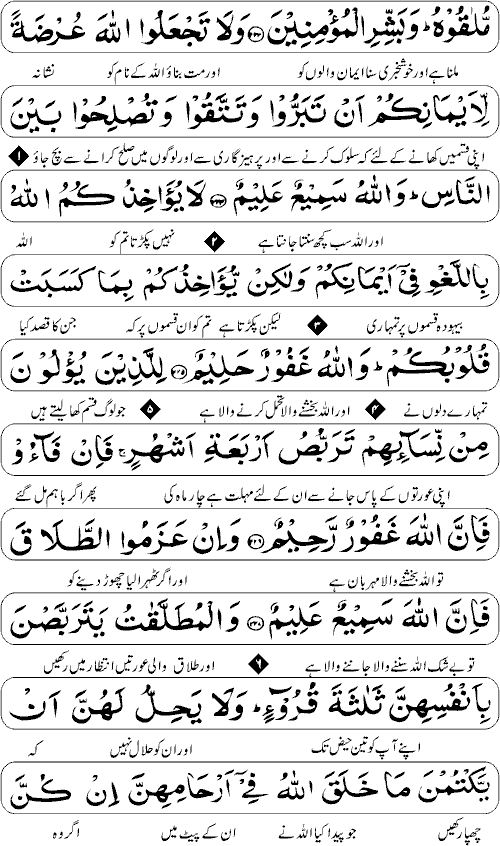 مُّلٰقُوْهُ ؕ وَبَشِّرِ الْمُؤْمِنِيْنَ ﴿۲۲۳﴾ وَلَا تَجْعَلُوا اللّٰهَ عُرْضَةً
ملنا ہے اور خوشخبری سنا ایمان والوں کو اور مت بناؤ اللہ کے نام کو نشانہ
لِّاَيْمَانِكُمْ اَنْ تَبَرُّوْا وَتَتَّقُوْا وَتُصْلِحُوْا بَيْنَ
اپنی قسمیں کھانے کے لئے کہ سلوک کرنے سے اور پرہیزگاری سے اور لوگوں میں صلح کرانے سے بچ جاؤ ۱
النَّاسِ ؕ وَاللّٰهُ سَمِيْعٌ عَلِيْمٌ ﴿۲۲۴﴾ لَا يُؤَاخِذُكُمُ اللّٰهُ
اور اللہ سب کچھ سنتا جانتا ہے ۲ نہیں پکڑتا تم کو اللہ
بِاللَّغْوِ فِىْٓ اَيْمَانِكُمْ وَلٰكِنْ يُّؤَاخِذُكُمْ بِمَا كَسَبَتْ
بیہودہ قسموں پر تمہاری ۳ لیکن پکڑتا ہے تم کو ان قسموں پر کہ جن کا قصد کیا
قُلُوْبُكُمْ ؕ وَاللّٰهُ غَفُوْرٌ حَلِيْمٌ ﴿۲۲۵﴾ لِلَّذِيْنَ يُؤْلُوْنَ
تمہارے دلوں نے ۴ اور اللہ بخشنے والا تحمل کرنے والا ہے ۵ جو لوگ قسم کھا لیتے ہیں
مِنْ نِّسَآئِهِمْ تَرَبُّصُ اَرْبَعَةِ اَشْهُرٍ ۚ فَاِنْ فَآءُوْ
اپنی عورتوں کے پاس جانے سے ان کے لئے مہلت ہے چار ماہ کی پھر اگر باہم مل گئے
فَاِنَّ اللّٰهَ غَفُوْرٌ رَّحِيْمٌ ﴿۲۲۶﴾ وَاِنْ عَزَمُوا الطَّلَاقَ
تو اللہ بخشنے والا مہربان ہے اور اگر ٹھہرا لیا چھوڑ دینے کو
فَاِنَّ اللّٰهَ سَمِيْعٌ عَلِيْمٌ ﴿۲۲۷﴾ وَالْمُطَلَّقٰتُ يَتَرَبَّصْنَ
تو بے شک اللہ سننے والا جاننے والا ہے ۶ اور طلاق والی عورتیں انتظار میں رکھیں
بِاَنْفُسِهِنَّ ثَلٰثَةَ قُرُوْٓءٍ ؕ وَلَا يَحِلُّ لَهُنَّ اَنْ
اپنے آپ کو تین حیض تک اور ان کو حلال نہیں کہ
يَّكْتُمْنَ مَا خَلَقَ اللّٰهُ فِىْٓ اَرْحَامِهِنَّ اِنْ كُنَّ
چھپا رکھیں جو پیدا کیا اللہ نے ان کے پیٹ میں اگر وہ